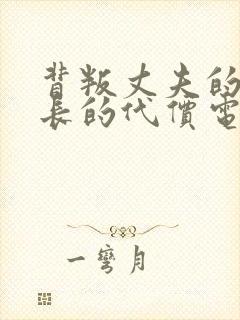 背叛丈夫的
長的代價電
一彎月